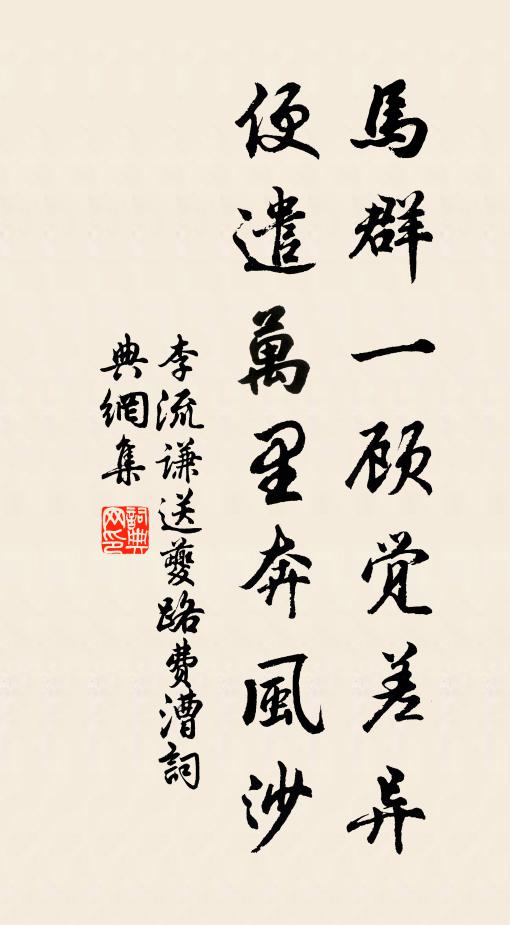 馬群一顾觉差异
便遣萬里奔風沙
李流谦送夔路费漕詞
典網集
詞典
网印